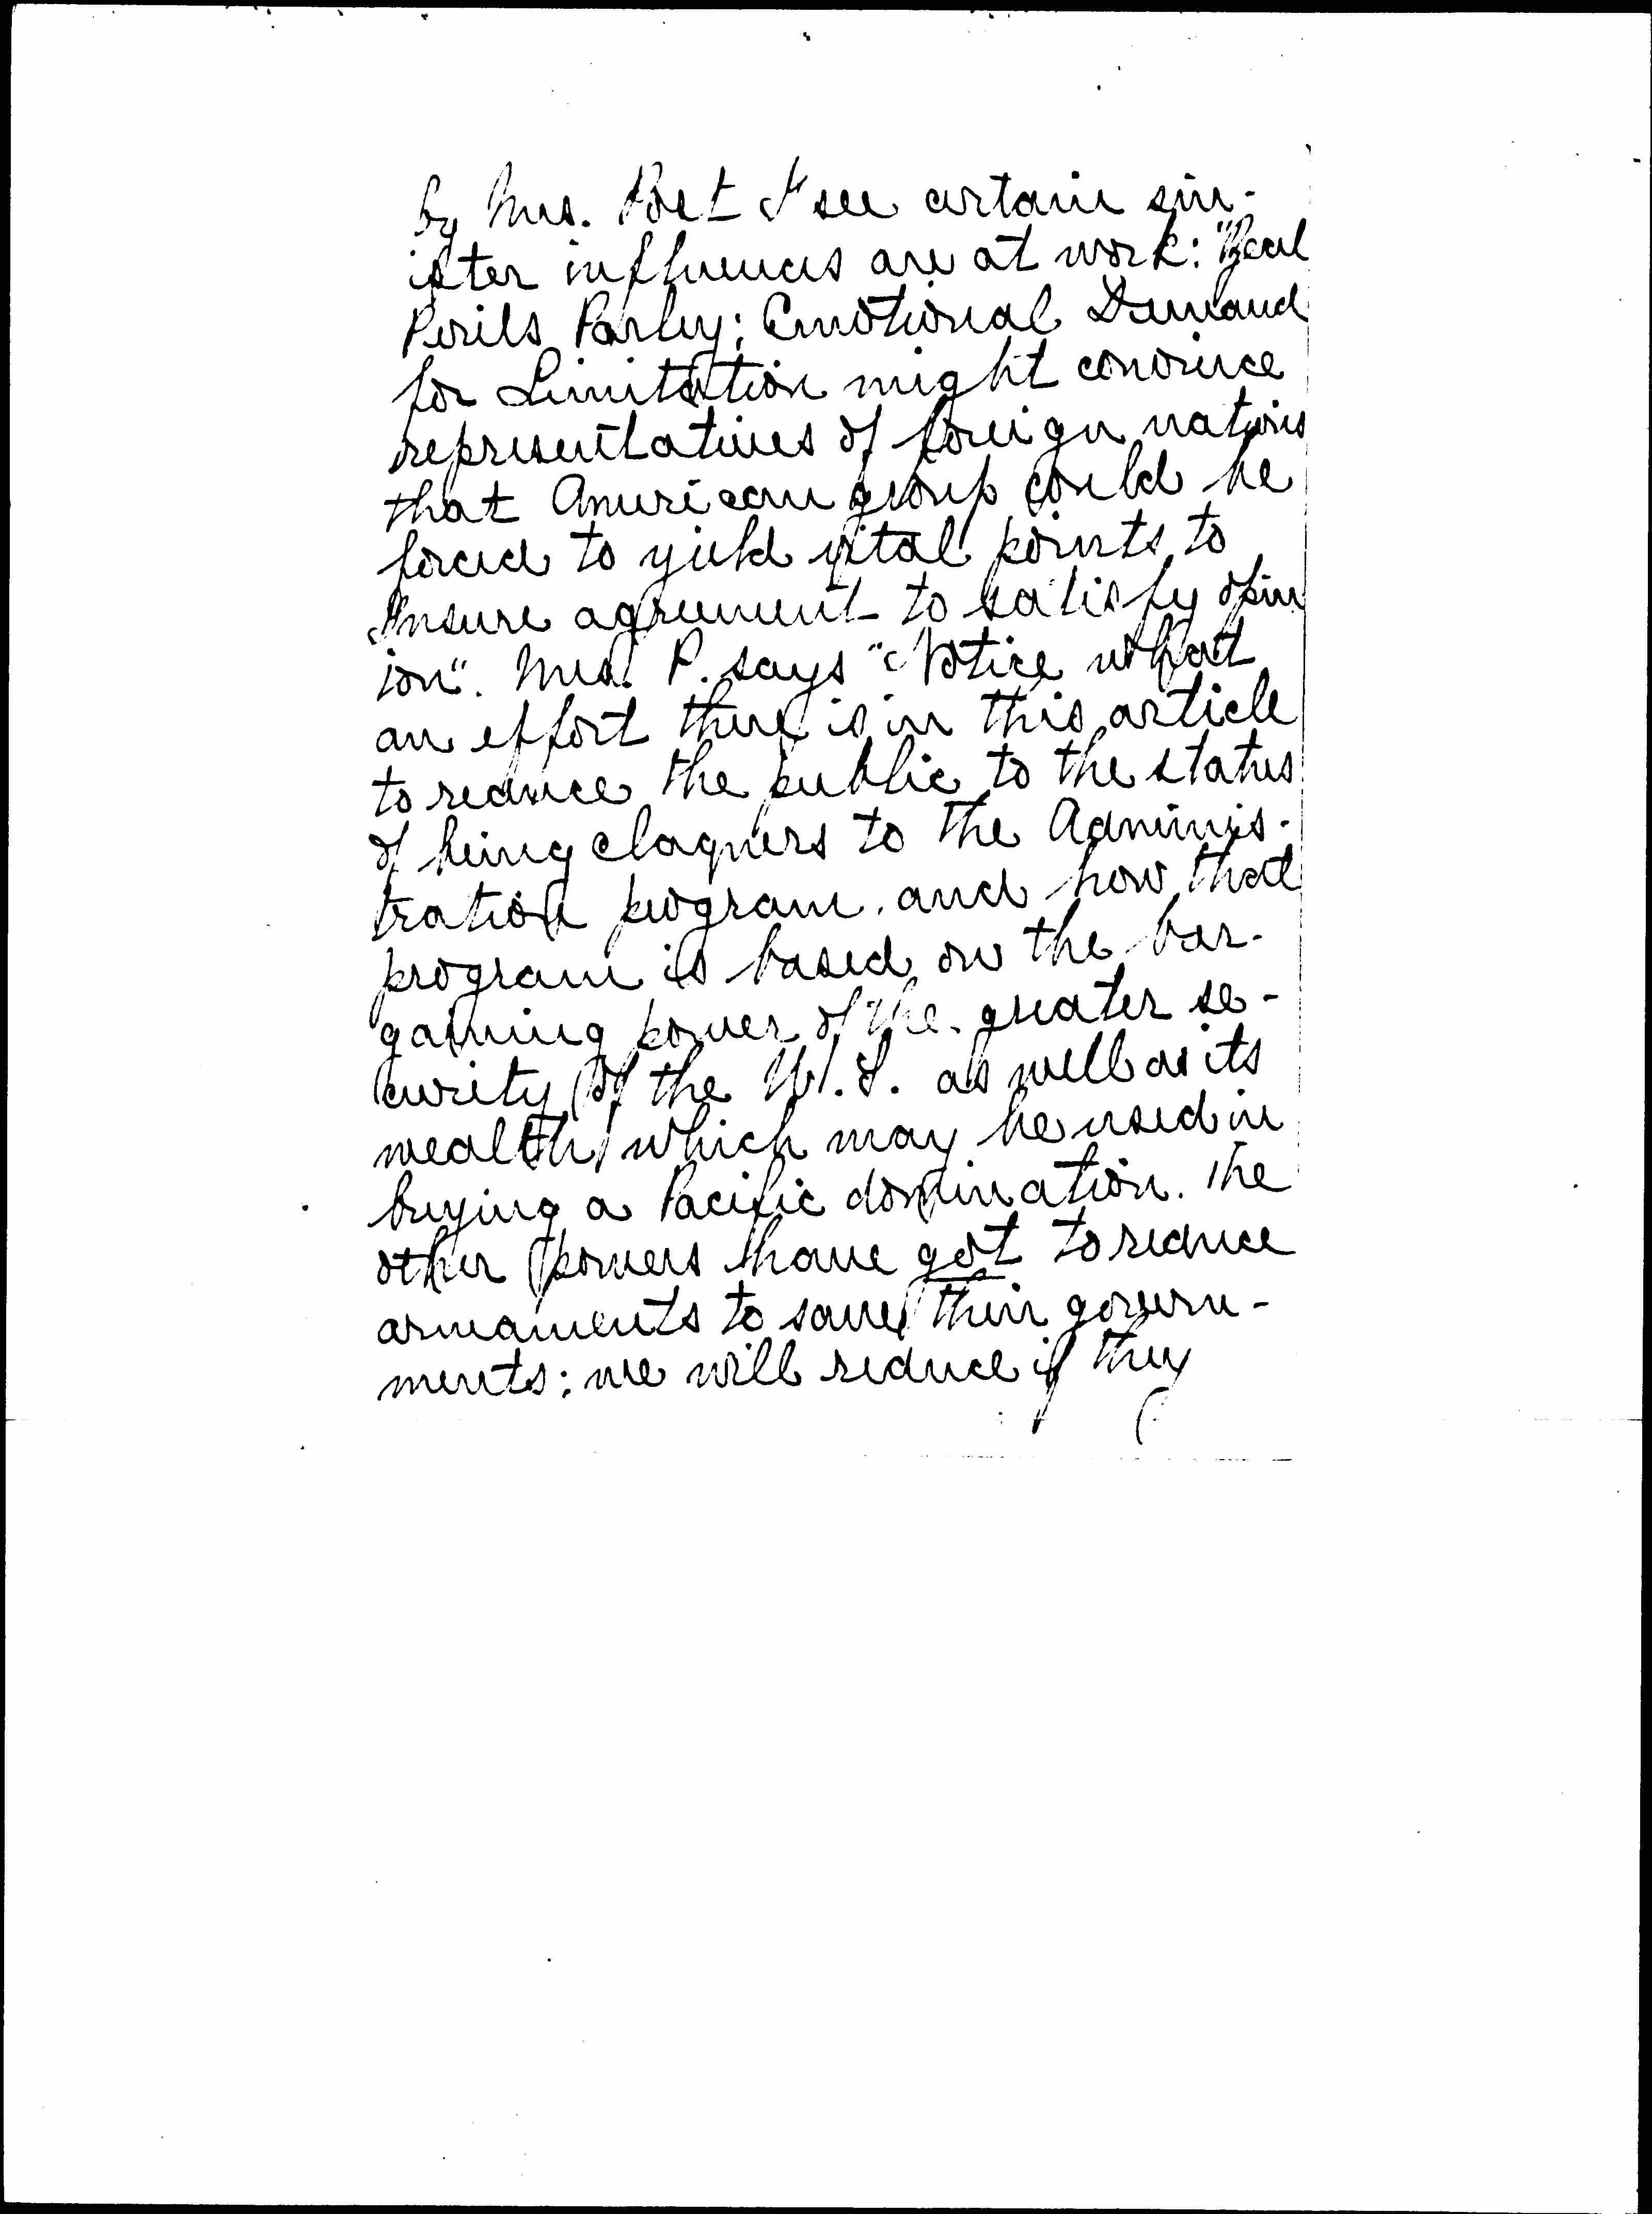 by Mrs. Post I see certain sin-
ister influences are at work: "Zeal
Perils Parley; Emotional Demand
for Limitation might convince
representatives of foreign nations
that American group could be
forced to yield vital points to
insure agreement to satisfy opin
ion". Mrs. P. says "Notice what
an effort there is in this article
to reduce the public to the status
of being claquers to the Adminis-
tration program. and how that
program is based on the bar-
gaining power of the greater se-
curity of the U.S. as well as its
wealth which may be used in
buying a Pacific domination. The
other powers have got to reduce
armaments to save their govern-
ments; we will reduce if they